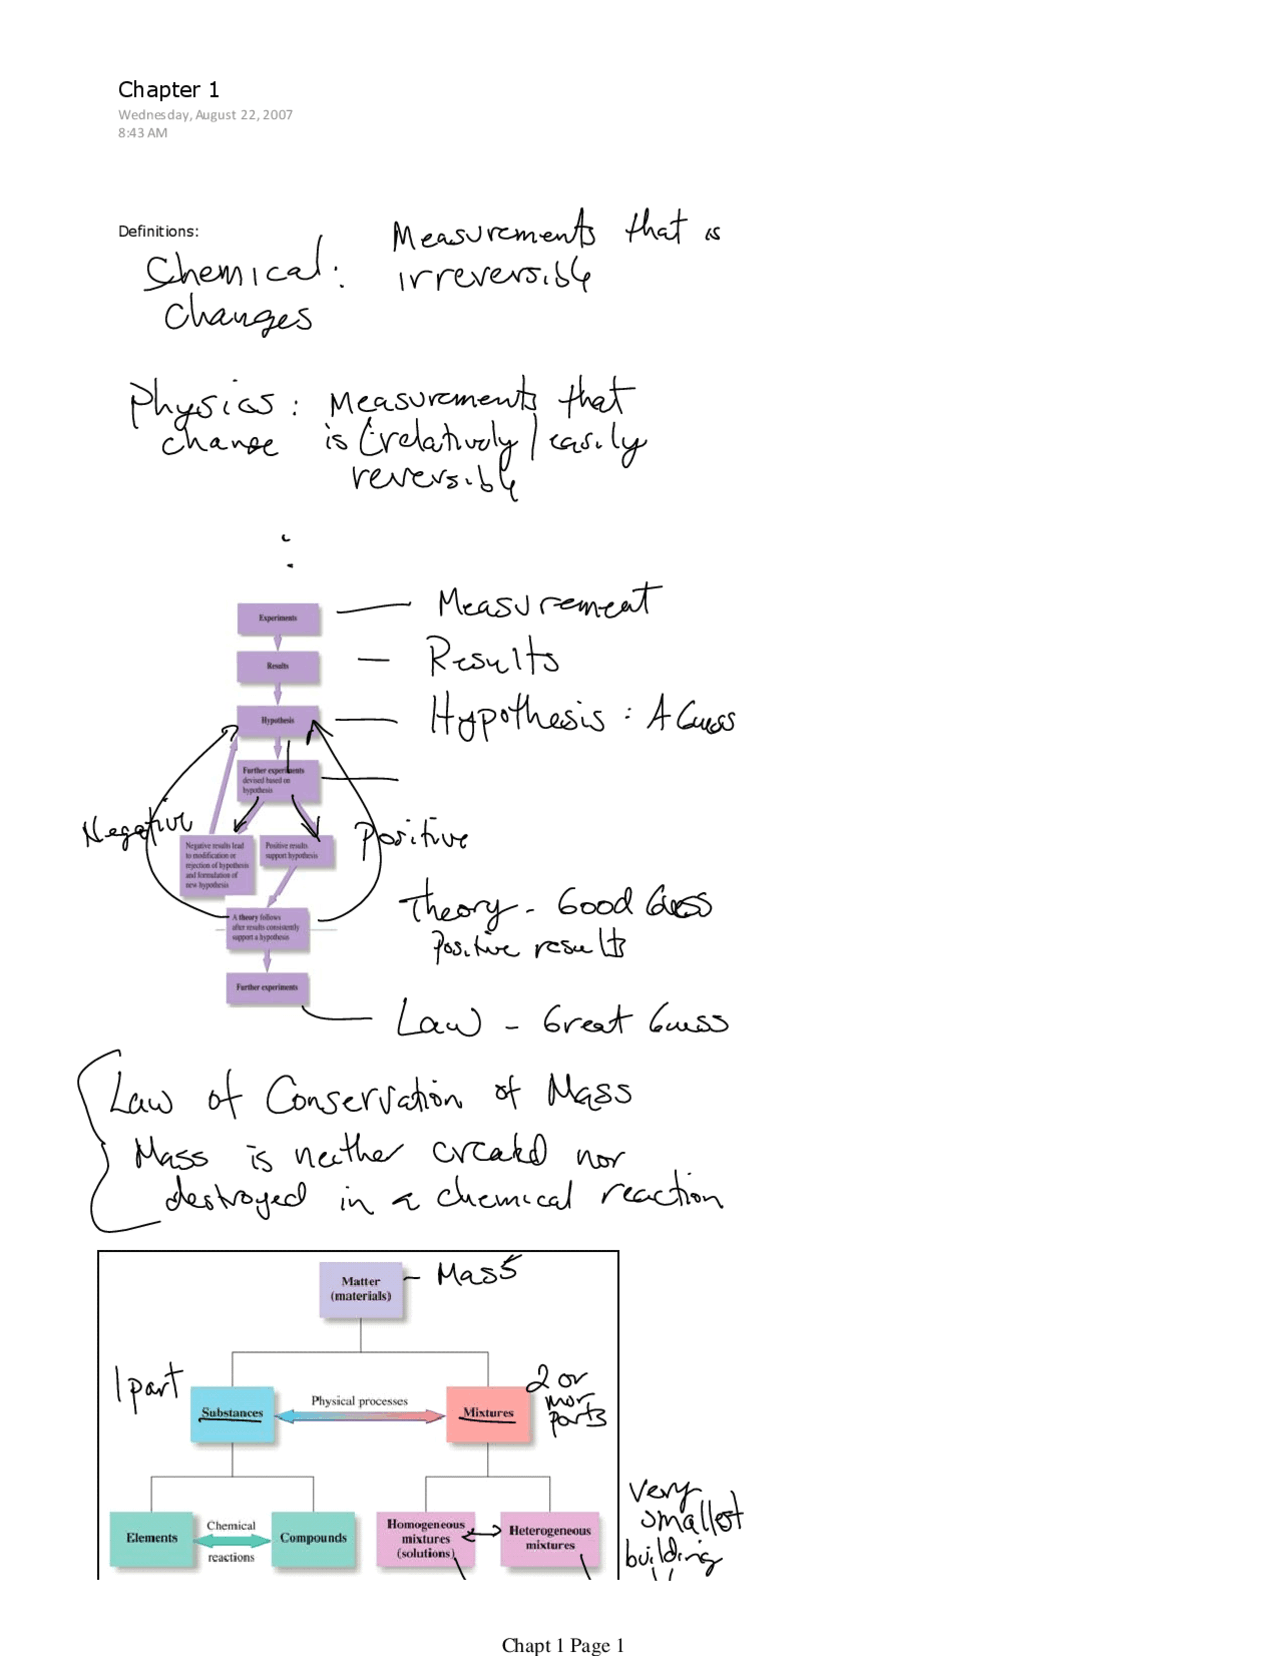 Chapter 1
Wednesday, August 22, 2007
8:43 AM
Definitions:
Chemical:
changes
Measurements that is
irreversible
Physics: Measurements that
change is (relatively) easily
reversible
:
Experiments
Measurement
Results
Results
Hypothesis
Hypothesis : A Guess
Further experiments
devised based on
hypothesis
Negative
Positive
Negative results lead
to modification or
rejection of hypothesis
and formulation of
new hypothesis
Positive results
support hypothesis
A theory follows
after results consistently
support a hypothesis
Theory - Good Guess
Positive results
Further experiments
Law - Great Guess
Law of Conservation of Mass
Mass is neither created nor
destroyed in a chemical reaction
Matter
(materials)
- Mass
1 part
Substances
Physical processes
Mixtures
2 or
more
parts
Elements
Chemical
reactions
Compounds
Homogeneous
mixtures
(solutions)
Heterogeneous
mixtures
very
smallest
building
Chapt 1 Page 1